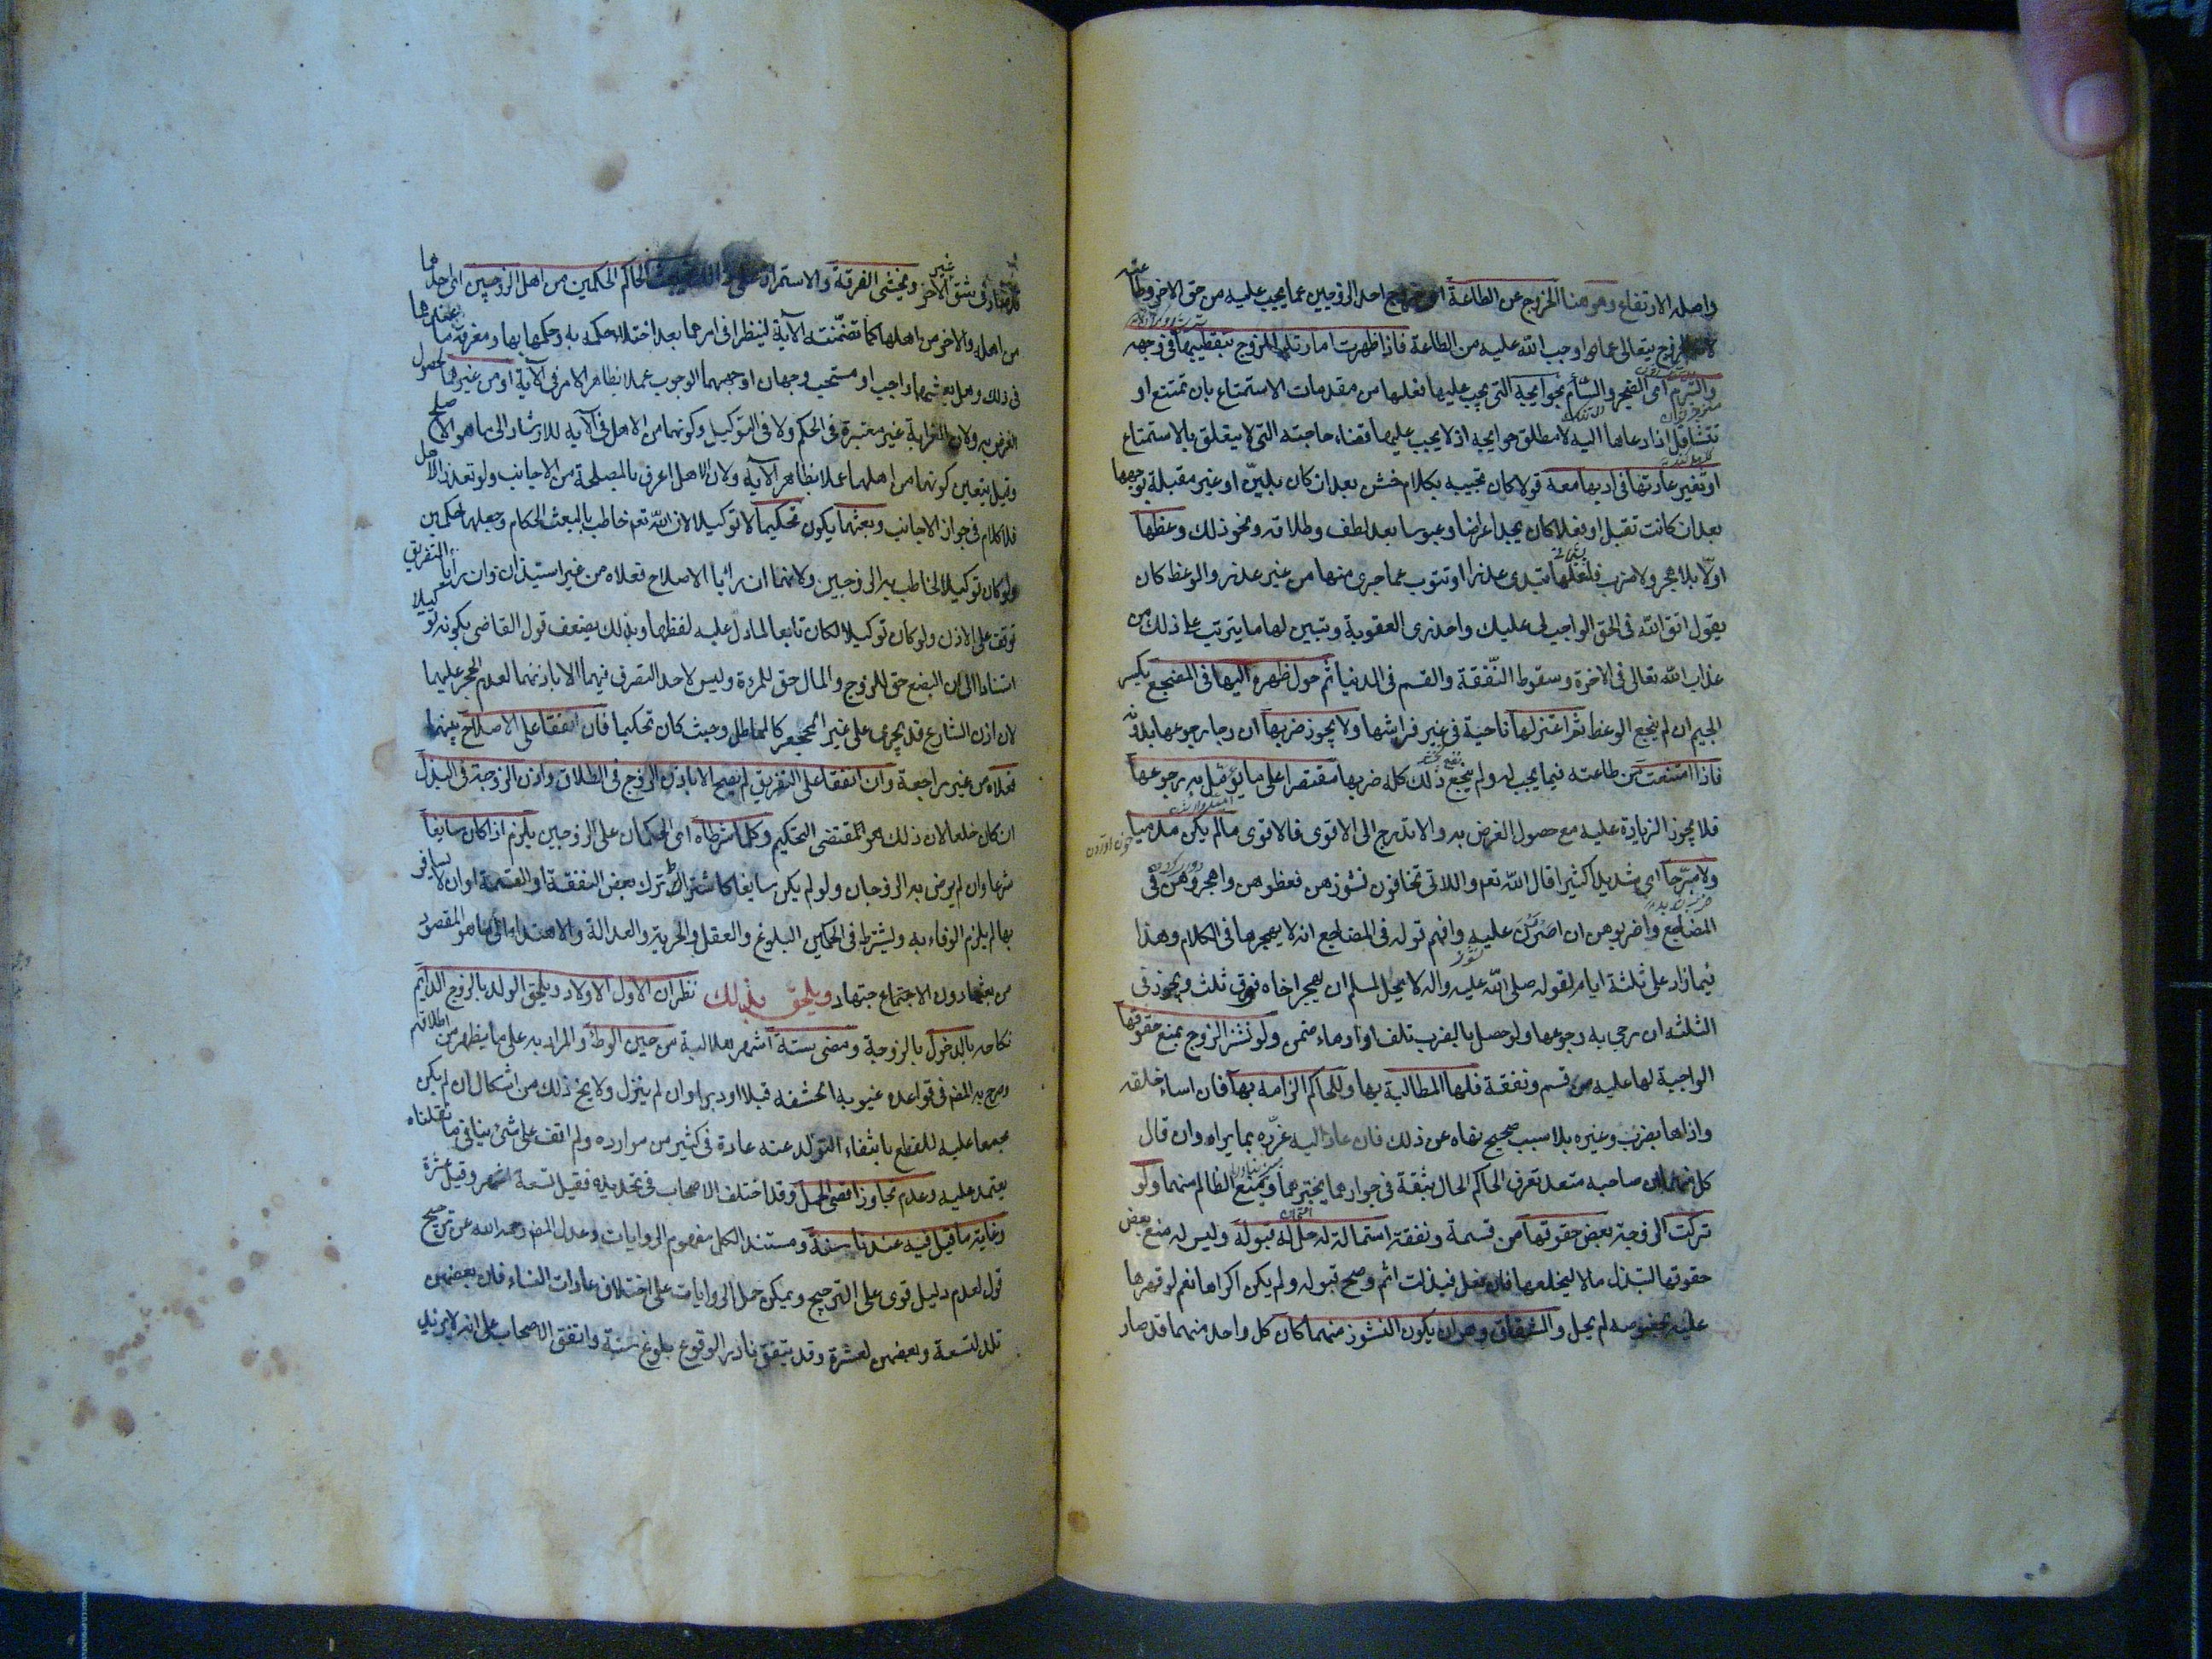 واصله الارتفاع وهو هنا الخروج عن الطاعة اى خروج احد الزوجين عما يجب عليه من حق الاخر وطاعته
لانه بالخروج يتعالى عما اوجب الله عليه من الطاعة فاذا ظهرت امارته للزوج بتقطيبها فى وجهه
والتبرم اى الضجر والسأم بحوايجه التى يجب عليها فعلها من مقدمات الاستمتاع بان تمتنع او
تتثاقل اذا دعاها اليه لا مطلق حوايجه اذ لا يجب عليها قضاء حاجته التى لا يتعلق بالاستمتاع
او تغير عادتها فى ادبها معه قولا كان تجيبه بكلام خشن بعد ان كان بلين او غير مقبلة بوجهها
بعد ان كانت تقبل او فعلا كان يجد اعراضا وعبوسا بعد لطف وطلاقه ونحو ذلك وعظها
اولا بلا هجر ولا ضرب فلعلها تبدى عذرا او تتوب عما جرى منها من غير عذر والوعظ كان
يقول اتق الله فى الحق الواجب لى عليك واحذرى العقوبة ويبين لها ما يترتب على ذلك من
عذاب الله تعالى فى الاخرة وسقوط النفقة والقسم فى الدنيا ثم حول ظهره اليها فى المضجع بكسر
الجيم ان لم ينجع الوعظ ثم اعتزلها ناحية فى غير فراشها ولا يجوز ضربها ان رجا رجوعها بدونه
فاذا امتنعت من طاعته فيما يجب له ولم ينجع ذلك كله ضربها مقتصرا على ما يؤمل به رجوعها
فلا يجوز الزيادة عليه مع حصول الغرض به والا تدرج الى الاقوى فالاقوى ما لم يكن مدميا
ولا مبرحا اى شديدا كثيرا قال الله تعم واللاتى تخافون نشوزهن فعظوهن واهجروهن فى
المضاجع واضربوهن ان اصررن عليه وافهم قوله فى المضاجع انه لا يهجرها فى الكلام وهذا
فيما زاد على ثلثة ايام لقوله صلى الله عليه واله لا يحل لمسلم ان يهجر اخاه فوق ثلث ويجوز فى
الثلثه ان رجى به رجوعها ولو حصل بالضرب تلف او ادماء ضمن ولو نشز الزوج بمنع حقوقها
الواجبة لها عليه من قسم ونفقة فلها المطالبة بها وللحاكم الزامه بها فان اساء خلقه
واذاها بضرب وغيره بلا سبب صحيح نهاه عن ذلك فان عاد اليه عزره بما يراه وان قال
كل منهما ان صاحبه متعد تعرف الحاكم الحال بثقة فى جوارهما يختبرهما ويمنع الظالم منهما ولو
تركت الزوجة بعض حقوقها من قسمة ونفقة استمالة له حل له قبوله وليس له منع بعض
حقوقها لتبذل مالا ليخلعها فان فعل فبذلت اثم وصح قبوله ولم يكن اكراها نعم لو قهرها
عليه بخصوصه لم يحل والشقاق وهو ان يكون النشوز منهما كان كل واحد منهما قد صار
فى شق غير شق الاخر ويخشى الفرقة والاستمرار على ذلك يبعث الحاكم الحكمين من اهل الزوجين اى احدهما
من اهله والاخر من اهلها كما تضمنته الآية لينظرا فى امرهما بعد اختلاء حكمه به وحكمها بها ومعرفة ما عندهما
فى ذلك وهل بعثهما واجب او مستحب وجهان اوجههما الوجوب عملا بظاهر الامر فى الآية او من غيرهما لحصول
الغرض به ولان القرابة غير معتبرة فى الحكم ولا فى التوكيل وكونهما من الاهل فى الآيه للارشاد الى ما هو الاصلح
وقيل يتعين كونهما من اهلهما عملا بظاهر الآيه ولان الاهل اعرف بالمصلحة من الاجانب ولو تعذر الاهل
فلا كلام فى جواز الاجانب وبعثهما يكون تحكيما لا توكيلا لان الله تعم خاطب بالبعث الحكام وجعلهما حكمين
ولو كان توكيلا لخاطب به الزوجين ولانهما ان رايا الاصلاح فعلاه من غير استيذان وان رأيا التفريق
توقف على الاذن ولو كان توكيلا لكان تابعا لما دل عليه لفظهما وبذلك يضعف قول القاضى بكونه توكيلا
استنادا الى ان البضع حق للزوج والمال حق للمرءة وليس لاحد التصرف فيهما الا باذنهما لعدم الحجر عليهما
لان اذن الشارع قد يجرى على غير المحجور كالمماطل وحيث كان تحكيما فان اتفقا على الاصلاح بينهما
فعلاه من غير مراجعة وان اتفقا على التفريق لم يصح الا باذن الزوج فى الطلاق واذن الزوجة فى البذل
ان كان خلعا لان ذلك هو مقتضى التحكيم وكلما شرطاه اى الحكمان على الزوجين يلزم اذا كان سايغا
شرعا وان لم يرض به الزوجان ولو لم يكن سايغا كاشتراط ترك بعض النفقة او القسمة او ان لا يسافر
بها لم يلزم الوفاء به ويشترط فى الحكمين البلوغ والعقل والحرية والعدالة والاهتداء الى ما هو المقصود
من بعثهما دون الاجتماع جتهاد ويلحق بذلك نظران الاول الاولاد ويلحق الولد بالزوج الدائم
نكاحه بالدخول بالزوجة ومضى ستة اشهر هلالية من حين الوطئ والمراد به على ما يظهر من اطلاقهم
وصرح به المصه فى قواعده غيبوبه الحشفه قبلا او دبرا وان لم ينزل ولا يخ ذلك من اشكال ان لم يكن
مجمعا عليه للقطع بانتفاء التولد عنه عادة فى كثير من موارده ولم اقف على شئ ينافى ما نقلناه
يعتمد عليه وعدم تجاوز اقصى الحمل وقد اختلف الاصحاب فى تحديده فقيل تسعة اشهر وقيل عشرة
وغاية ما قيل فيه عندنا سنة ومستند الكل مفهوم الروايات وعدل المصه رحمه الله عن ترجيح
قول لعدم دليل قوى على الترجيح ويمكن حمل الروايات على اختلاف عادات النساء فان بعضهن
تلد لتسعة وبعضهن لعشرة وقد يتفق نادر الوقوع بلوغ سنة واتفق الاصحاب على انه لا يزيد